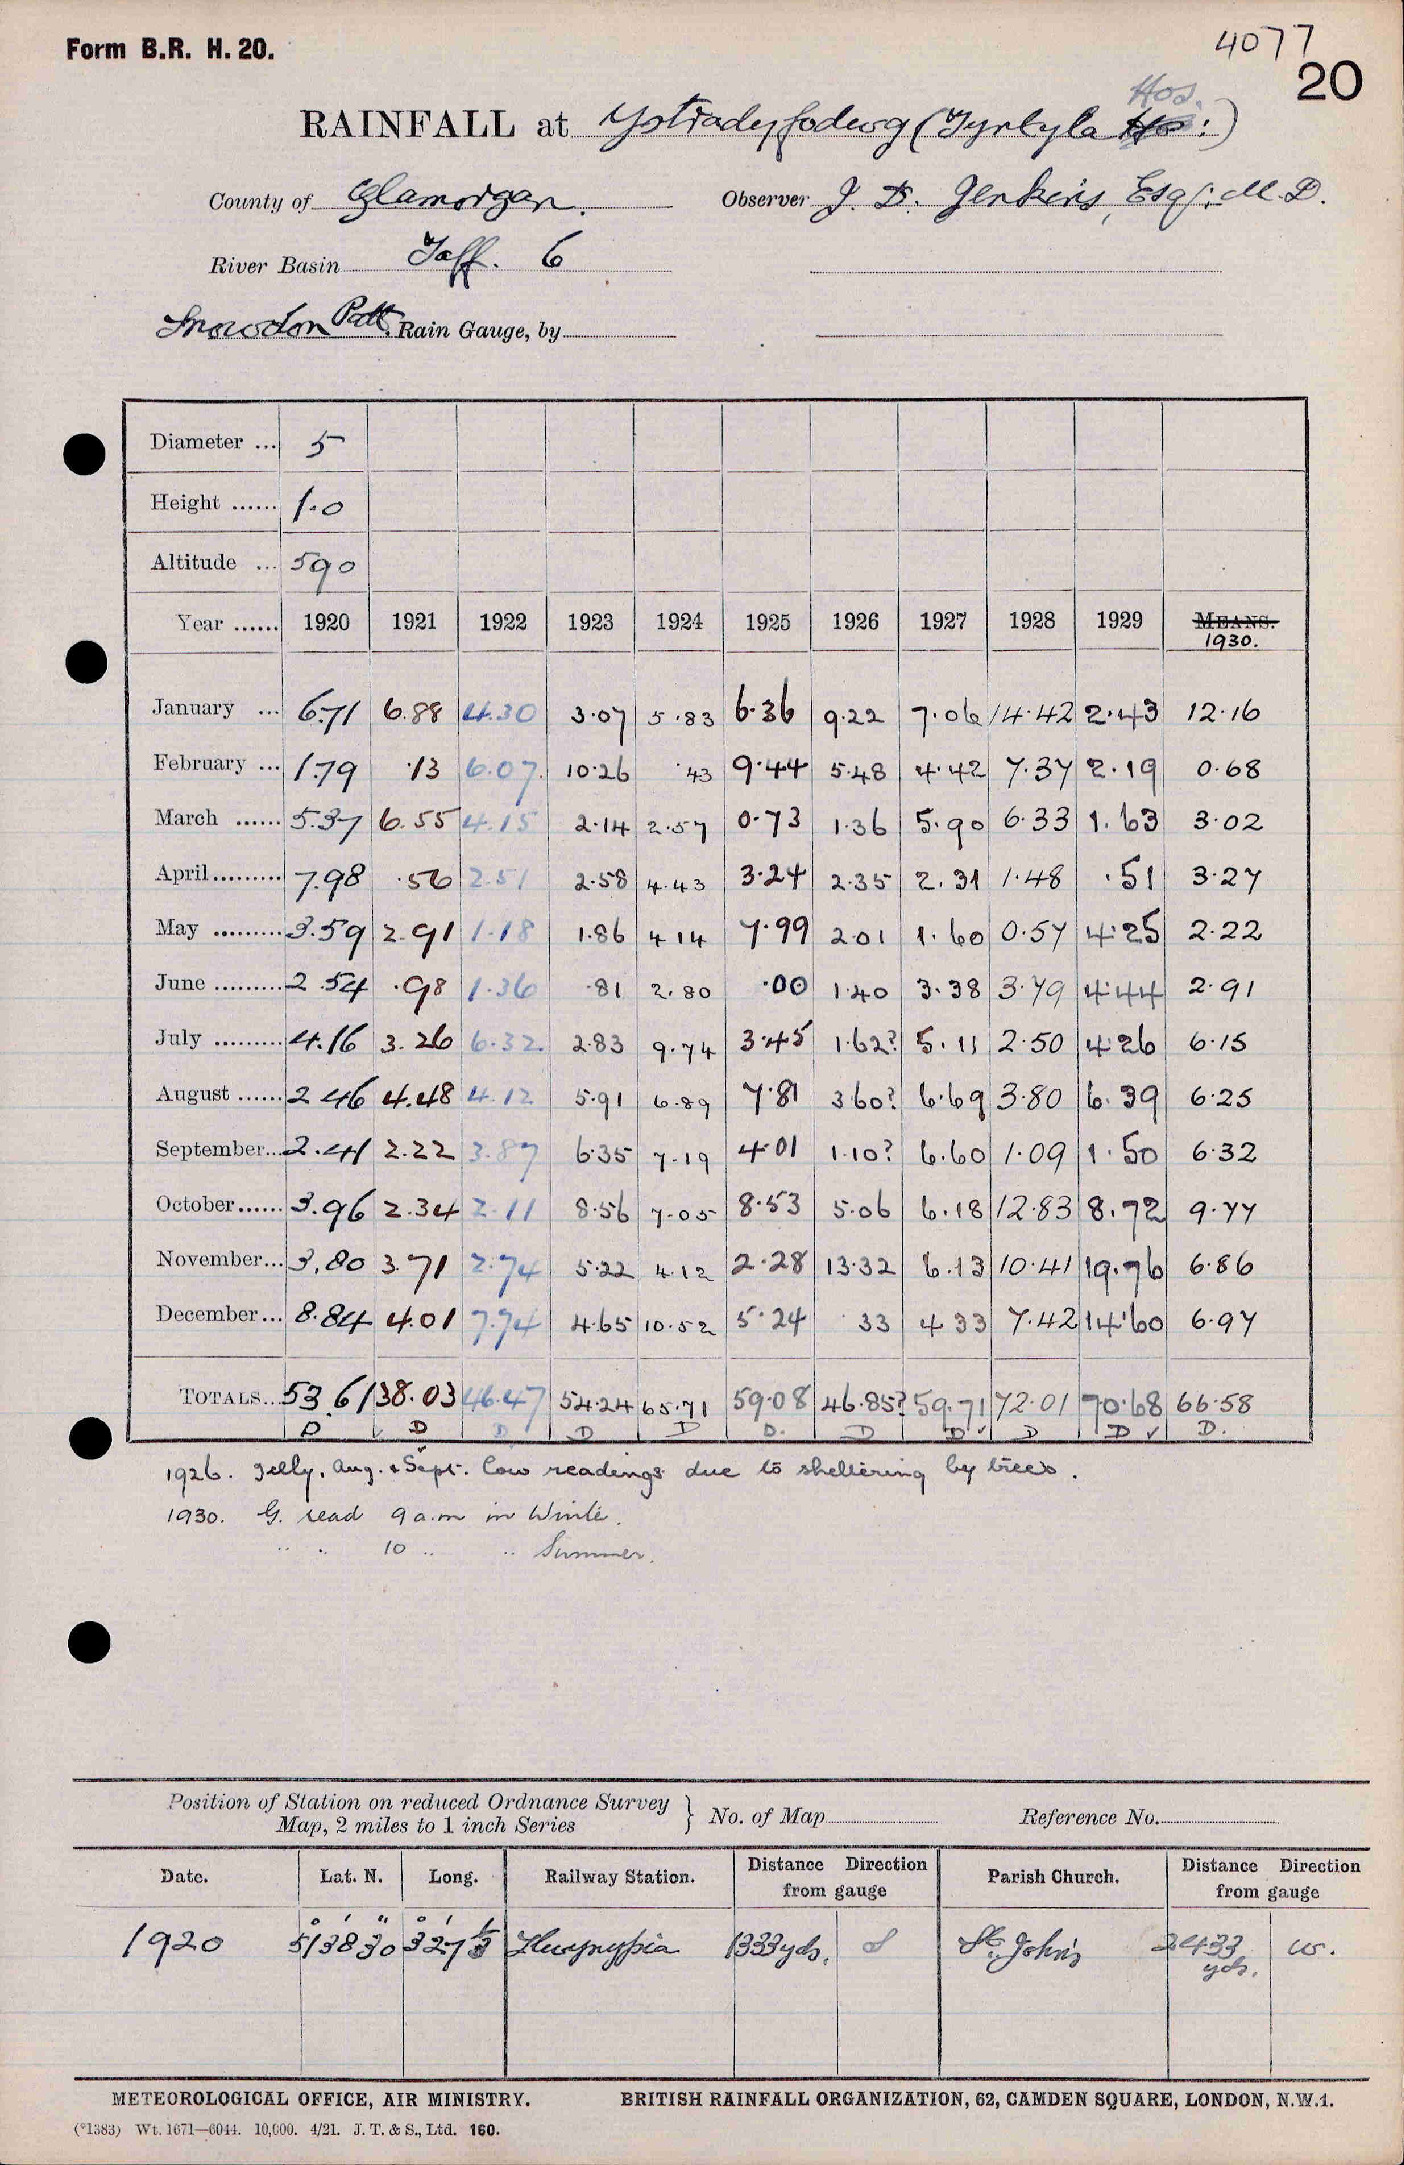 Form B.R. H. 20.
4077
20
RAINFALL at Ystradyfodwg (Tyntyla Hos. :)
County of Glamorgan. Observer J. D. Jenkins, Esq: M.D.
River Basin Taff. 6
Snowdon Patt. Rain Gauge, by
Diameter ... 5
Height ...... 1.0
Altitude ... 590
Year ...... 1920 1921 1922 1923 1924 1925 1926 1927 1928 1929 MEANS.
1930.
January ... 6.71 6.88 4.30 3.07 5.83 6.36 9.22 7.06 14.42 2.43 12.16
February ... 1.79 .13 6.07 10.26 .43 9.44 5.48 4.42 7.37 2.19 0.68
March ...... 5.37 6.55 4.15 2.14 2.57 0.73 1.36 5.90 6.33 1.63 3.02
April ......... 7.98 .56 2.51 2.58 4.43 3.24 2.35 2.31 1.48 .51 3.27
May ......... 3.59 2.91 1.18 1.86 4.14 7.99 2.01 1.60 0.57 4.25 2.22
June ......... 2.54 .98 1.36 .81 2.80 .00 1.40 3.38 3.79 4.44 2.91
July ......... 4.16 3.26 6.32 2.83 9.74 3.45 1.62? 5.11 2.50 4.26 6.15
August ...... 2.46 4.48 4.12 5.91 6.89 7.81 3.60? 6.69 3.80 6.39 6.25
September... 2.41 2.22 3.87 6.35 7.19 4.01 1.10? 6.60 1.09 1.50 6.32
October...... 3.96 2.34 2.11 8.56 7.05 8.53 5.06 6.18 12.83 8.72 9.77
November... 3.80 3.71 2.74 5.22 4.12 2.28 13.32 6.13 10.41 19.76 6.86
December... 8.84 4.01 7.74 4.65 10.52 5.24 .33 4.33 7.42 14.60 6.97
TOTALS... 53.61 38.03 46.47 54.24 65.71 59.08 46.85? 59.71 72.01 70.68 66.58
D D D D D D. D D ✓ D D ✓ D.
1926. July, Aug. & Sept. low readings due to sheltering by trees.
1930. G. read 9 a.m in Winter.
" " 10 " " Summer.
Position of Station on reduced Ordnance Survey
Map, 2 miles to 1 inch Series } No. of Map Reference No.
Date. Lat. N. Long. Railway Station. Distance Direction from gauge Parish Church. Distance Direction from gauge
1920 51° 38' 30" 3° 27' Llwynypia 1333 yds. S St. John's 2433 yds. W.
METEOROLOGICAL OFFICE, AIR MINISTRY. BRITISH RAINFALL ORGANIZATION, 62, CAMDEN SQUARE, LONDON, N.W.1.
(*1383) Wt. 1671—6044. 10,000. 4/21. J. T. & S., Ltd. 160.